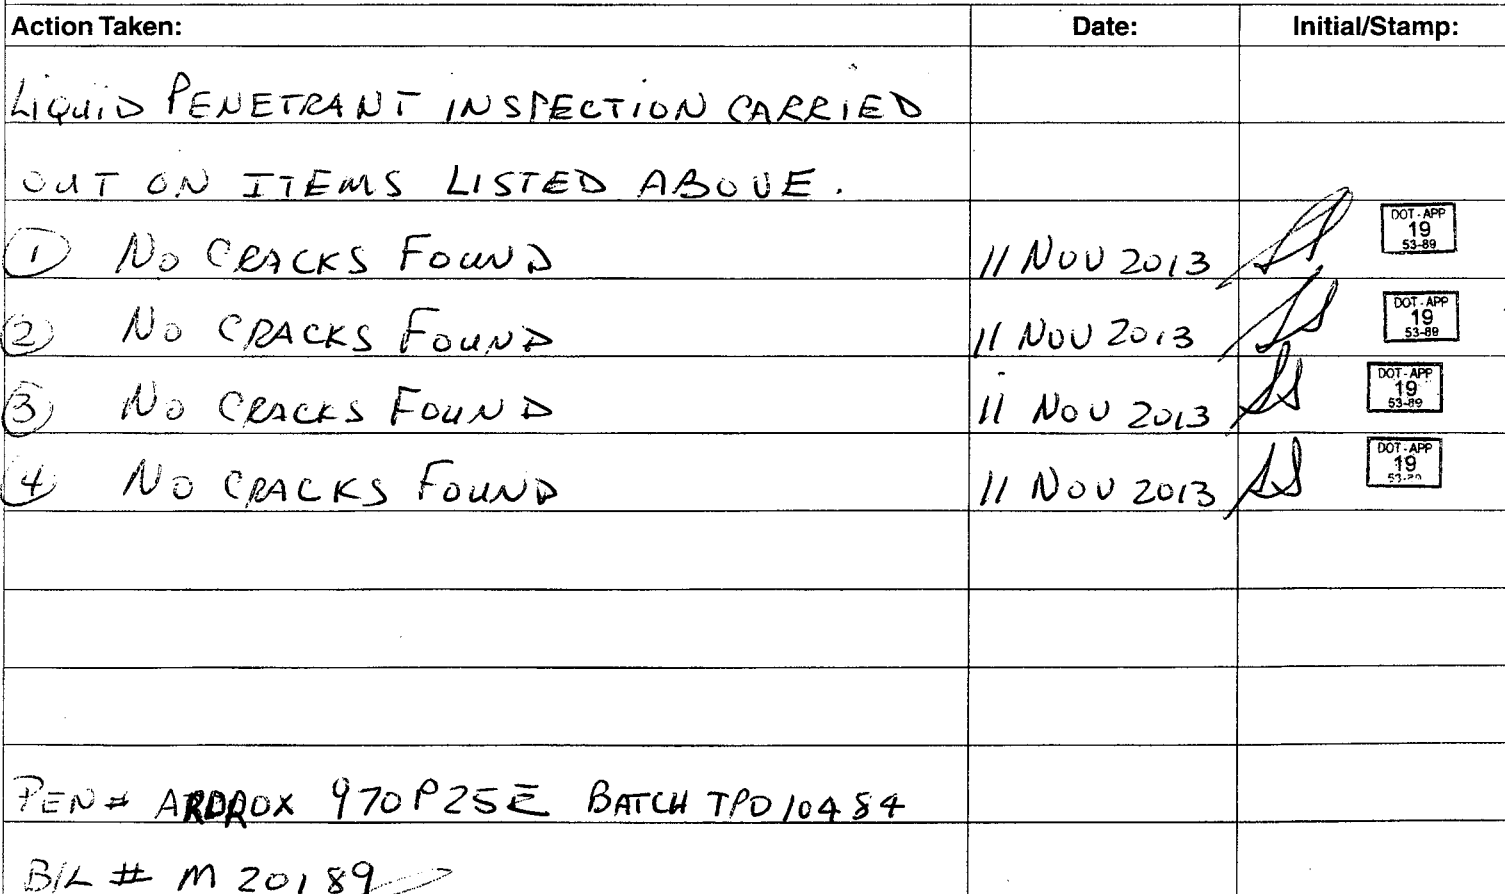 Action Taken: Date: Initial/Stamp:
LIQUID PENETRANT INSPECTION CARRIED
OUT ON ITEMS LISTED ABOVE.
1 NO CRACKS FOUND 11 NOV 2013 DOT-APP 19 53-89
2 NO CRACKS FOUND 11 NOV 2013 DOT-APP 19 53-89
3 NO CRACKS FOUND 11 NOV 2013 DOT-APP 19 53-89
4 NO CRACKS FOUND 11 NOV 2013 DOT-APP 19
PEN# ARDROX 970P25E BATCH TPD10484
B/L # M 20189